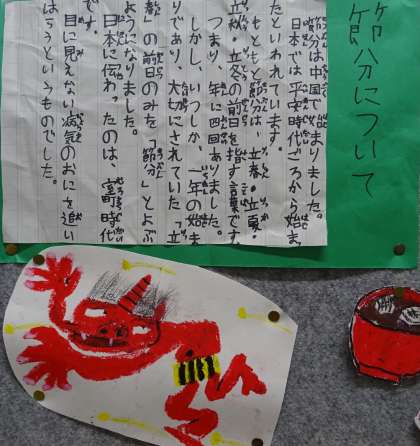 節分について
節分は中国で始まりました。
日本では平安時代ごろから始ま
ったといわれています。
もともと節分は、立春・立夏・
立秋・立冬の前日を指す言葉です。
つまり、年に四回ありました。
しかし、いつしか、一年の始ま
りであり、大切にされていた「立
春」の前日のみを「節分」とよぶ
ようになりました。
日本に伝わったのは、室町時代
です。
目に見えない病気のおにを追い
はらうというものでした。